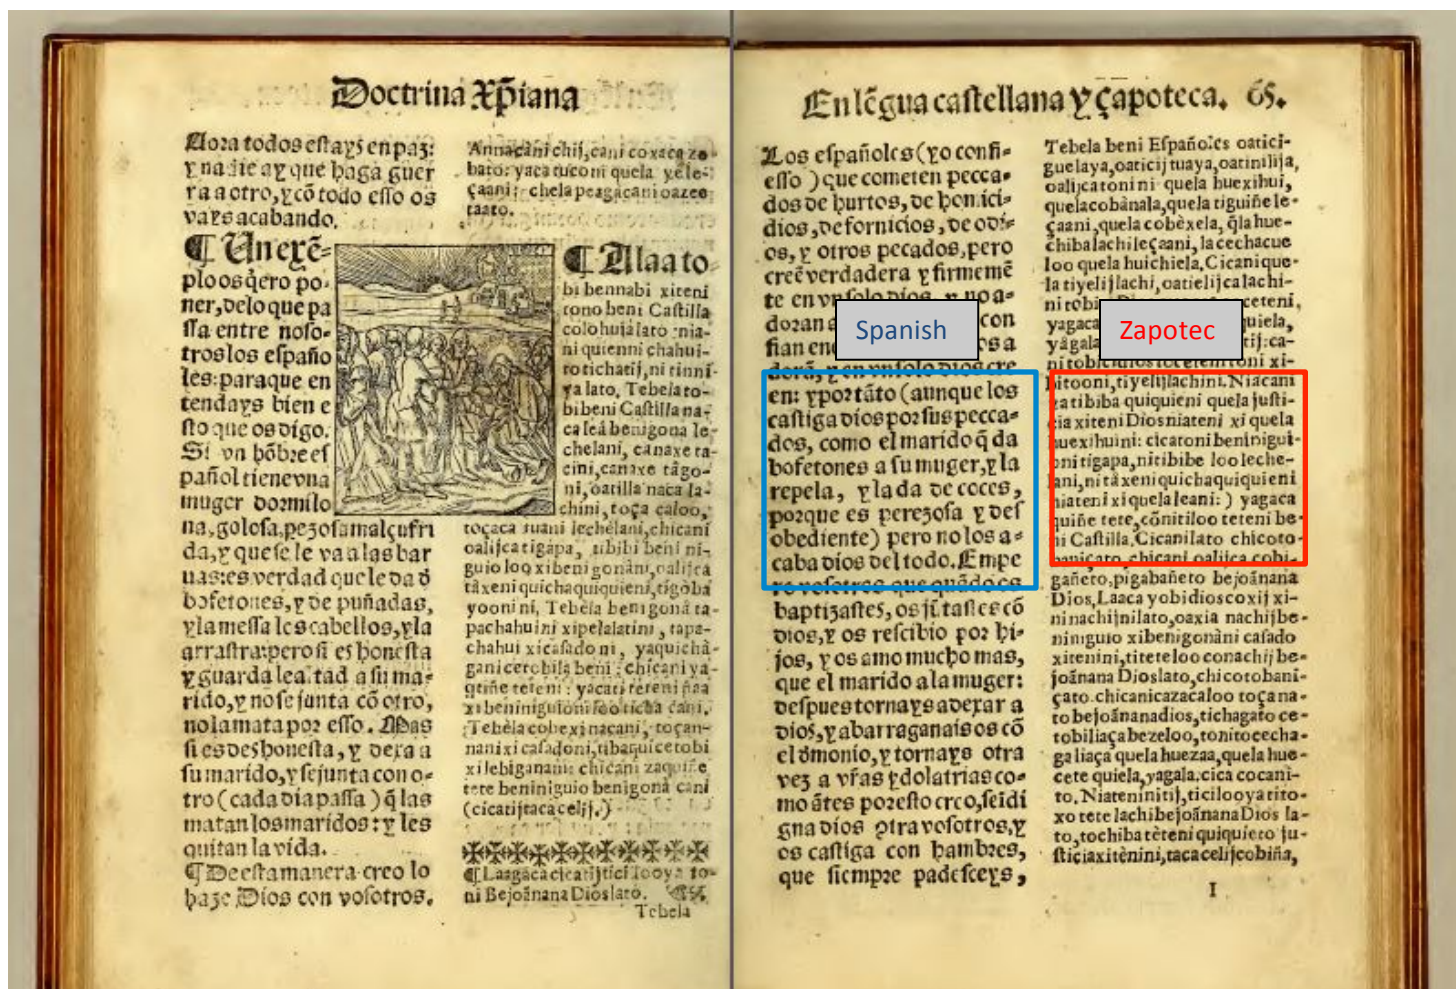 Doctrina Xp̄iana
Aora todos estays en paz:
y nadie ay que haga guer
ra a otro, y cō todo esso os
vays acabando.
¶ Un exē-
plo os q̄ero po-
ner, delo que pa
ssa entre noso-
tros los españo
les: para que en
tendays bien e
sto que os digo.
Si vn hōbre es
pañol tiene vna
muger dormilo
na, golosa, pezosa mal çufri
da, y que se le va a las bar
uas: es verdad que le da d̄
bofetones, y de puñadas,
y la messa les cabellos, y la
arrastra: pero si es honesta
y guarda lealtad a su ma-
rido, y no se junta cō otro,
no la mata por esso. Mas
si es deshonesta, y dexa a
su marido, y se junta con o-
tro (cada dia passa) q̄ las
matan los maridos: y les
quitan la vida.
¶ De esta manera creo lo
haze Dios con vosotros.
Annacani chij, cani coxaca ze-
bato: yaca tuconi quela yele-
çaani: chela peagacani oazeo
taato.
¶ Alaa to
bi bennabi xiteni
tono beni Castilla
colohuialato nia-
ni quienni chahui-
ro tichatij, ni tinni-
ya lato. Tebela to-
bi beni Castilla na-
ca leá benigona le-
chelani, canaxe ta-
cini, canaxe tâgo-
ni, oatilla naca la-
chini, toça caloo,
toçaca ruani lechelani, chicani
oalijca tigapa, tibibi beni ni-
guio loo xibenigonani, oalijca
tâxeni quichaquiquieni, tigòba
yooni ni, Tebela benigona ta-
pachahuini xipelalatini, tapa-
chahui xicasadoni, yaquichà-
ganicetobila beni: chicani ya-
quiñe teteni: yacati teteni
xi beniniguioni loo ticha cani.
Tebela cobexi nacani, toçan-
nani xi casadoni, tibaquicetobi
xilebiganani: chicani zaquiñe
tete beniniguio benigona cani
(cicatijtacacelij.)
¶ Laagaca cicatijtici looya to-
ni Bejoãnana Dios lato.
Tebela
En lēgua castellana y çapoteca. 65.
Los españoles (yo confi-
esso) que cometen pecca-
dos de hurtos, de homici-
dios, de fornicios, de odi-
os, y otros pecados, pero
creē verdadera y firmemē
te en vn solo dios, y no a-
doran a con
fian en os a
dorā, y en vn solo dios cre
en: y por tāto (aunque los
castiga dios por sus pecca-
dos, como el marido q̄ da
bofetones a su muger, y la
repela, y la da de coces,
porque es perezosa y des
obediente) pero no los a-
caba dios del todo. Empe
ro vosotros que quādo os
baptizastes, os jūtastes cō
dios, y os rescibio por hi-
jos, y os amo mucho mas,
que el marido a la muger:
despues tornays a dexar a
dios, y abarraganaisos cō
el dmonio, y tornays otra
vez a vr̄as ydolatrias co-
mo ātes por esto creo, se idi
gna dios cōtra vosotros, y
os castiga con hambres,
que siempre padesceys,
Spanish
Tebela beni Españoles oatici-
guelaya, oaticij tuaya, oatinilija,
oalijcatonini quela huexihui,
quelacobànala, quela tiguiñe le-
çaani, quela cobèxela, q̄la hue-
chibalachileçaani, la cechacue
loo quela huichiela. Cicanique-
la tiyelijlachi, oatielijcalachi-
ni tobi ceteni,
yagaca quiela,
yâgala tij: ca-
ni
bitooni, tiyelijlachini. Niacani
ça tibiba quiquieni quela justi-
cia xiteni Dios niateni xi quela
huexihuini: cicatoni beninigui-
oni tigapa, ni tibibe loo leche-
lani, ni tâxeni quichaquiquieni
niateni xiquelaleani:) yagaca
quiñe tete, cōnitiloo teteni be-
ni Castilla. Cicanilato chicoto-
banicato chicani oalijca cobi-
gañeto, pigabañeto bejoãnana
Dios, Laaca yobidioscoxij xi-
ninachijnilato, oaxia nachijbe-
niniguio xibenigonàni casado
xitenini, titeteloo conachij be-
joãnana Dioslato, chicotobani-
çato chicanicazacaloo toçana-
to bejoãnanadios, tichagato ce-
tobiliaça bezeloo, tonitocecha-
ga liaça quela huezaa, quela hue-
cete quiela, yagala. cica cocani-
to. Niateninitij, ticilooyatito-
xo tete lachibejoãnana Dios la-
to, tochiba tèteni quiquieto ju-
sticiaxitènini, tacacelijcobiña,
Zapotec
I